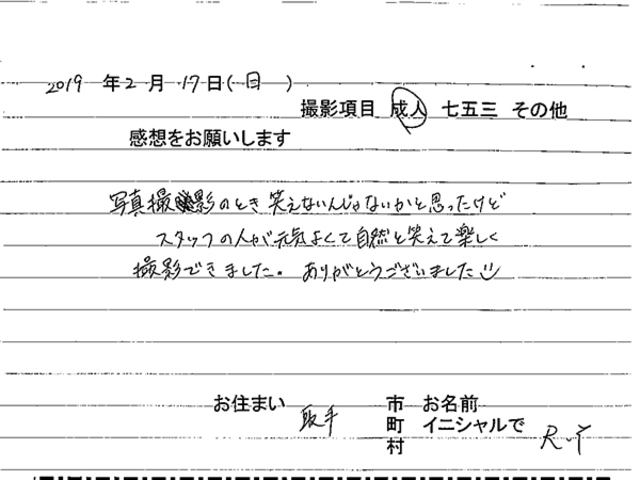 2019 年 2 月 17日(日 )
撮影項目 成人 七五三 その他
感想をお願いします
写真撮影のとき笑えないんじゃないかと思ったけど
スタッフの人が元気よくて自然と笑えて楽しく
撮影できました。ありがとうございました
お住まい 取手 市 お名前
町 イニシャルで
村 R.